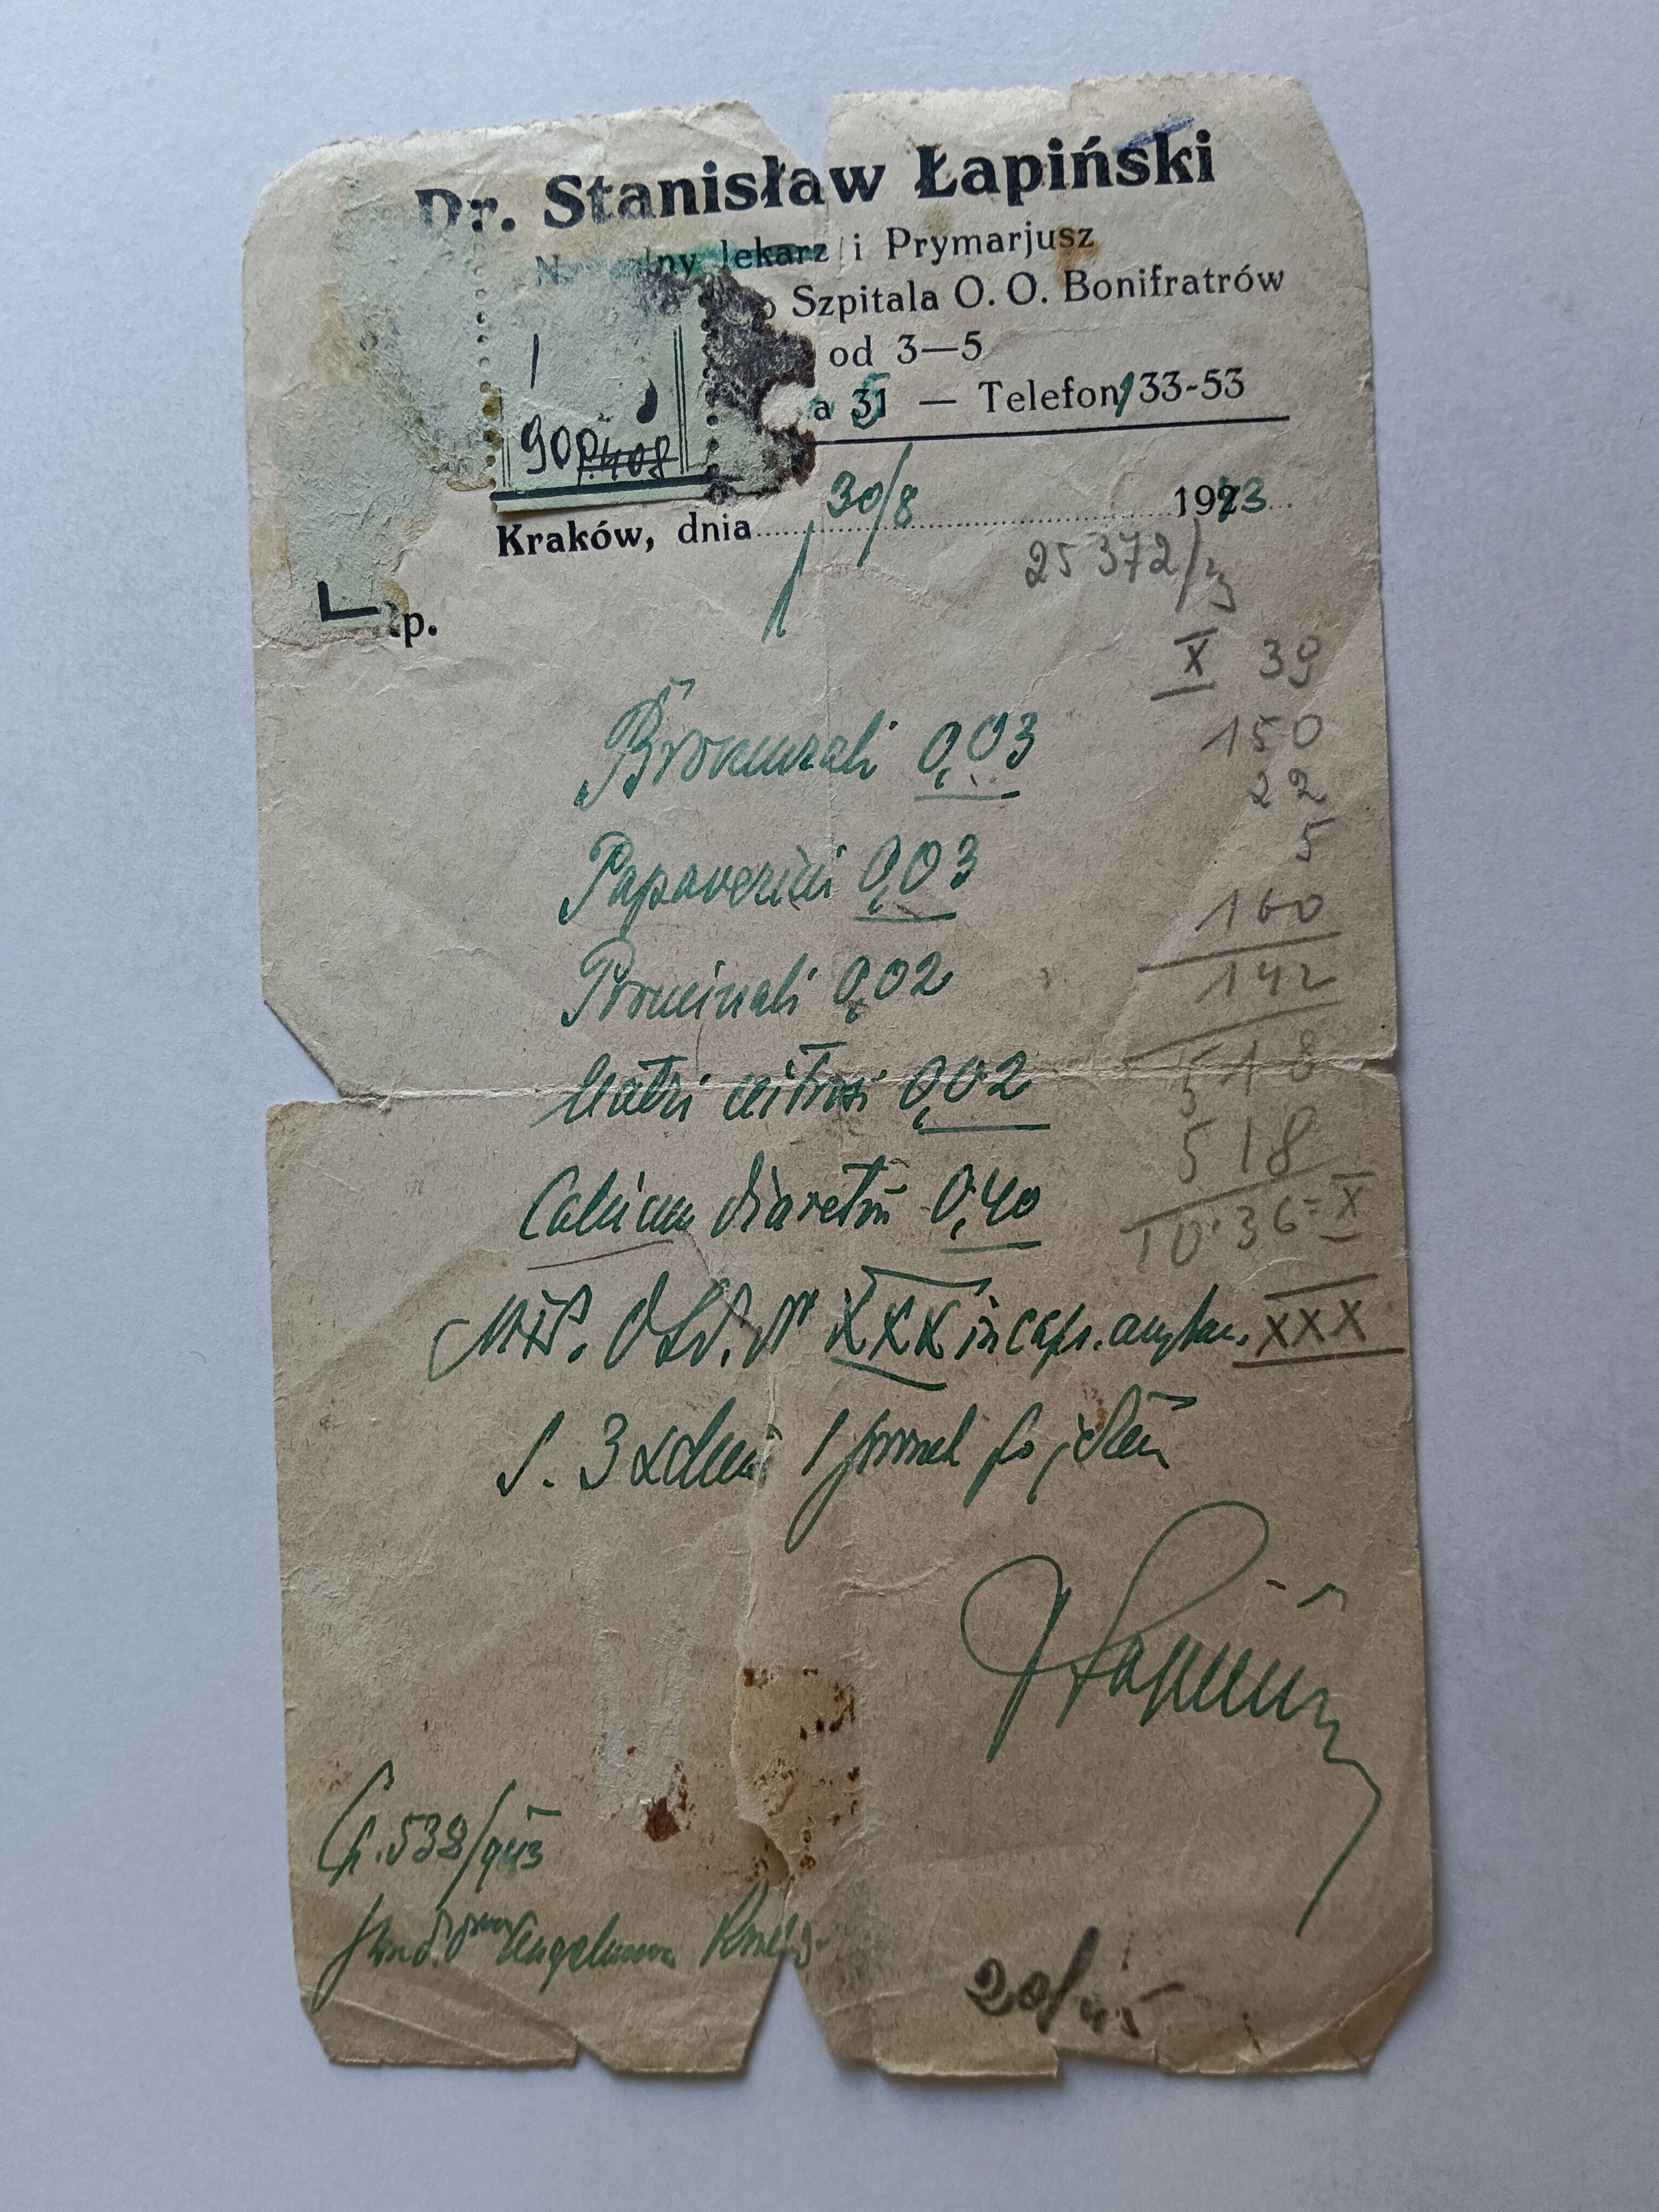 Dr. Stanisław Łapiński
lekarz i Prymarjusz
Szpitala O. O. Bonifratrów
od 3—5
a 31 — Telefon 133-53
90
Kraków, dnia 30/8 1943
25372/
Rp.
X 39
150
22
5
160
142
518
518
10·36 = X
Bromurali 0,03
Papaverini 0,03
Prominali 0,02
Natri nitrosi 0,02
Calcium diuretini 0,40
Mf. D t d. N XXX in caps. amylac. XXX
S. 3 x dnia 1 prosz po jedzeniu
Łapiński
538/943
20/45